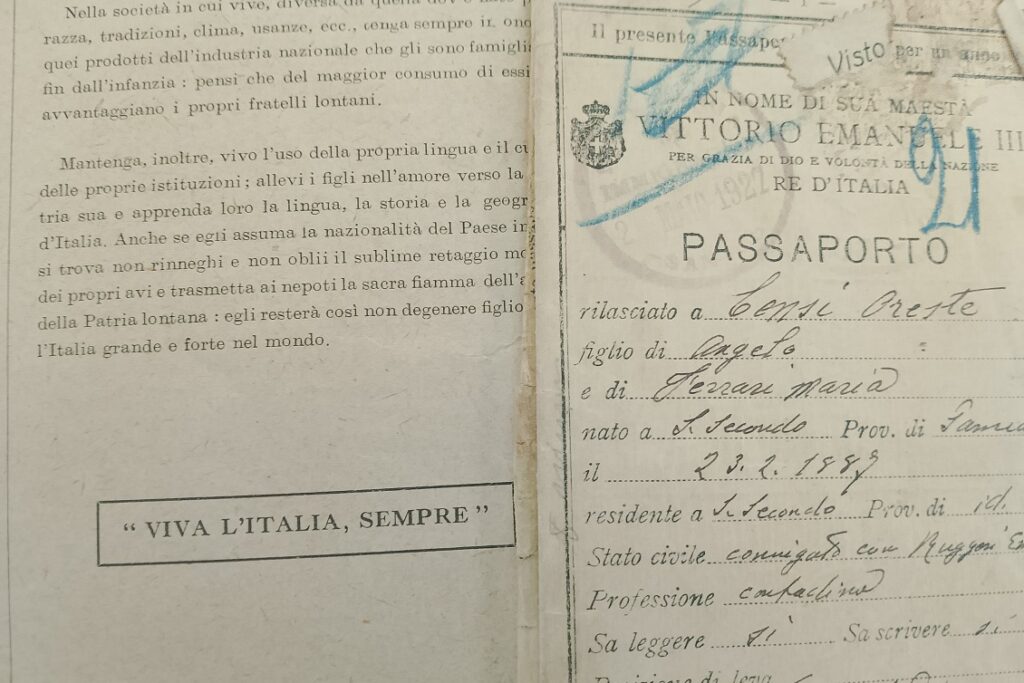 Nella società in cui vive, diversa da quella
razza, tradizioni, clima, usanze, ecc., tenga sempre in
quei prodotti dell'industria nazionale che gli sono
fin dall'infanzia : pensi che del maggior consumo di essi
avvantaggiano i propri fratelli lontani.
Mantenga, inoltre, vivo l'uso della propria lingua e il
delle proprie istituzioni ; allevi i figli nell'amore verso la
tria sua e apprenda loro la lingua, la storia e la
d'Italia. Anche se egli assuma la nazionalità del Paese
si trova non rinneghi e non oblii il sublime retaggio
dei propri avi e trasmetta ai nepoti la sacra fiamma
della Patria lontana : egli resterà così non degenere figlio
l'Italia grande e forte nel mondo.
“ VIVA L'ITALIA, SEMPRE ”
Il presente
Visto per un anno
IN NOME DI SUA MAESTÀ
VITTORIO EMANUELE III
PER GRAZIA DI DIO E VOLONTÀ DELLA NAZIONE
RE D'ITALIA
1922
PASSAPORTO
rilasciato a Censi Oreste
figlio di Angelo
e di Ferrari Maria
nato a S. Secondo Prov. di
il 23.2.1887
residente a S. Secondo Prov. di id.
Stato civile coniugato con
Professione contadino
Sa leggere sì Sa scrivere sì